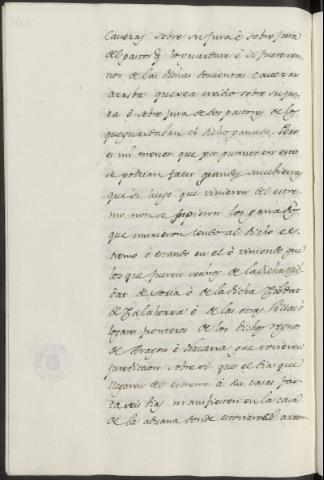 Caveras sobre su jura é sobre jura
del pastor q lo guardare é si fueren me
nos de las dichas doscientas caveras
arriba que sea creido sobre su ju
ra é sobre jura de dos pastores de los
que guardaban el dicho ganado. Pero
es mi merced que por quanto en esto
se podrian facer grandes encubiertas
que si luego que vinieren del estre
mo non se supieren los ganados
que murieron iendo al dicho es
tremo ó estando en el ó viniendo que
los que fueren vecinos de la dicha Cib
dat de Soria ó de la dicha Cibdat
de Calahorra é de las otras Villas ó
logares fronteros de los dichos regnos
de Aragon é Navarra que tovieren
juredicion sobre si que el dia que
llegaren del estremo á sus casas fas
ta seis dias manifiesten en la casa
de la aduana donde escrivieren